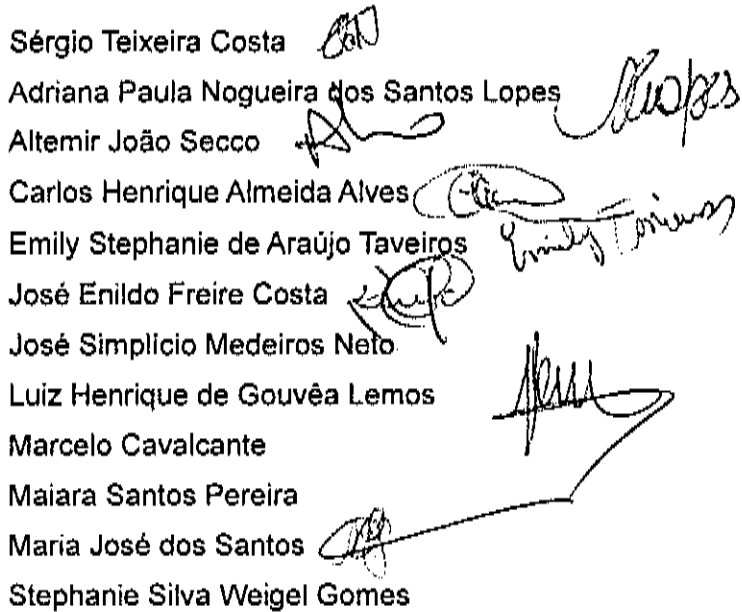 Sérgio Teixeira Costa
Adriana Paula Nogueira dos Santos Lopes
Altemir João Secco
Carlos Henrique Almeida Alves
Emily Stephanie de Araújo Taveiros Emily Taveiros
José Enildo Freire Costa
José Simplício Medeiros Neto
Luiz Henrique de Gouvêa Lemos
Marcelo Cavalcante
Maiara Santos Pereira
Maria José dos Santos
Stephanie Silva Weigel Gomes